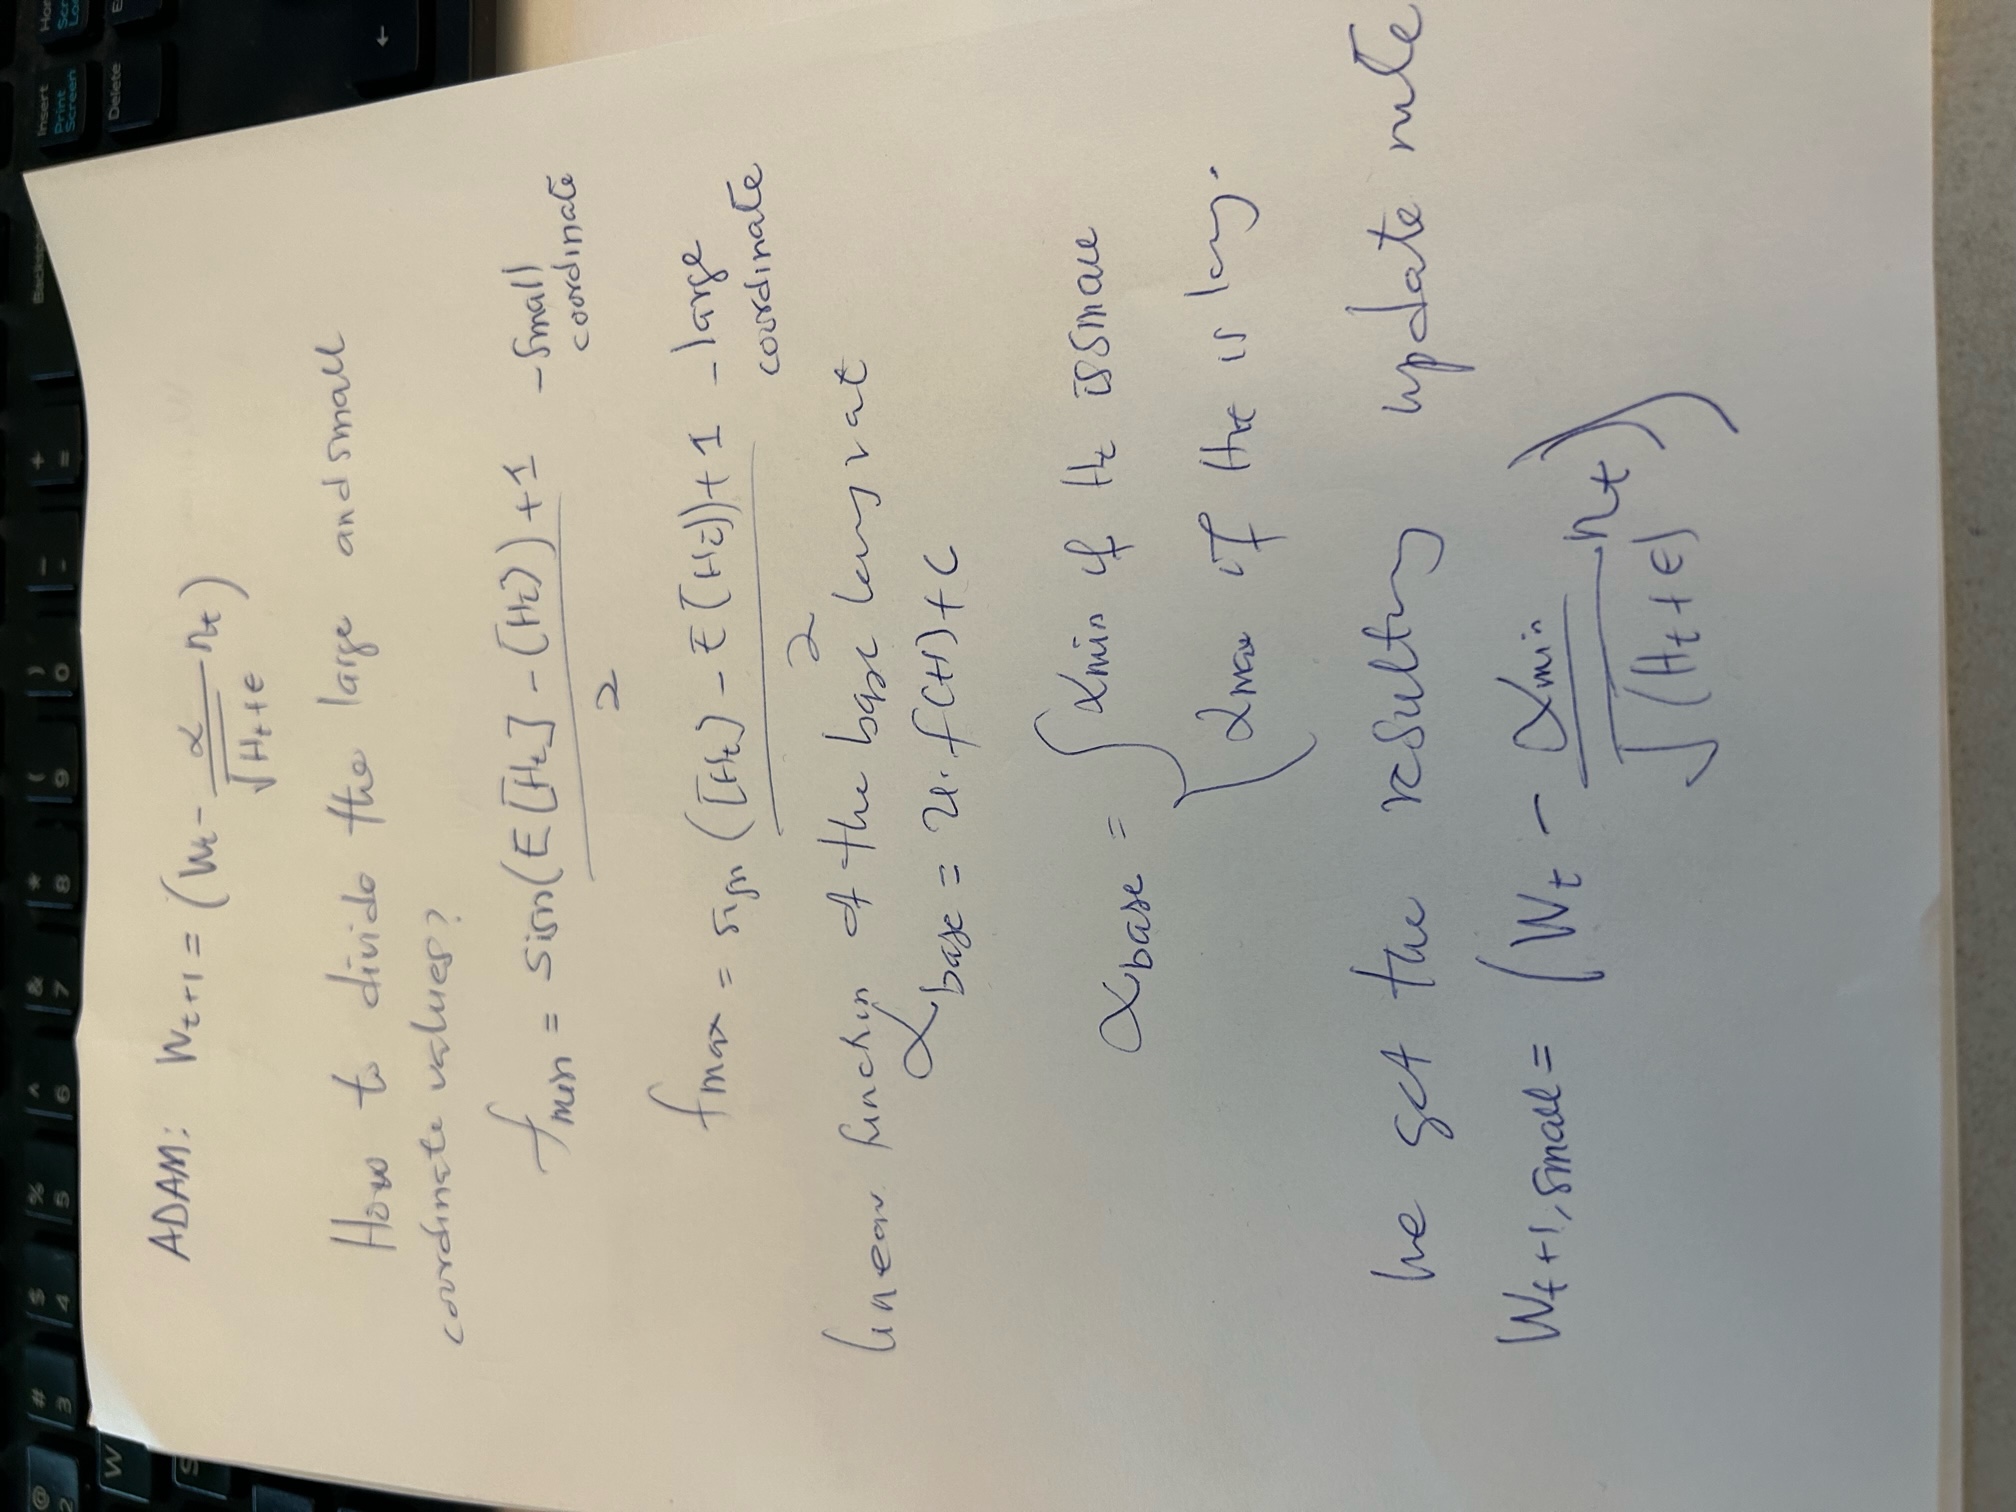 @ # $ % ^ & * ( ) _ +
2 3 4 5 6 7 8 9 0 - =
Backspace
Insert
Print
Screen
Delete
W
S
ADAM: W_{t+1} = (W_t - α/√(H_t+ϵ) n_t)
How to divide the large and small
coordinate values?
f_{min} = sign(E[H_t] - [H_t]) + 1 / 2 - small
coordinate
f_{max} = sign([H_t] - E[H_t]) + 1 / 2 - large
coordinate
linear function of the base
α_{base} = u·f(H)+C
α_{base} = { α_{min} if H_t is small
α_{max} if H_t is
we get the resulting update rule
W_{t+1, small} = (W_t - α_{min}/√(H_t+ϵ) n_t)